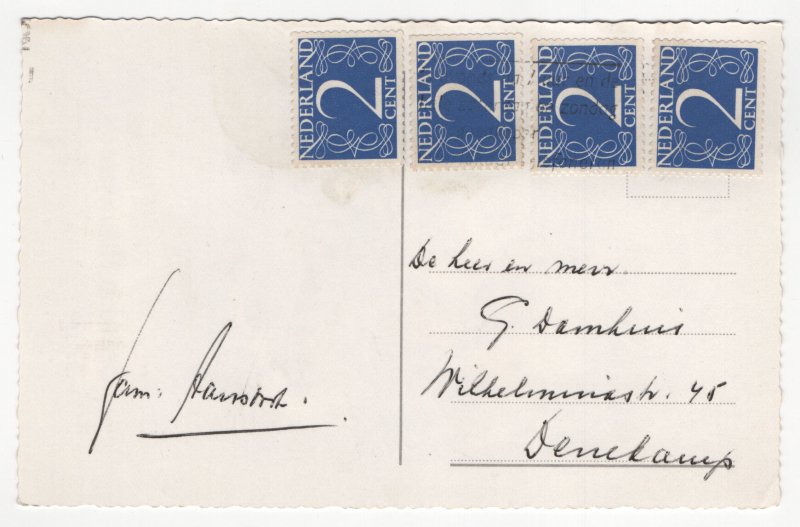 NEDERLAND
2
CENT
NEDERLAND
2
CENT
NEDERLAND
2
CENT
NEDERLAND
2
CENT
en de
zondag
De heer en mevr.
G. Damhuis
Wilhelminastr. 45
Denekamp
fam.